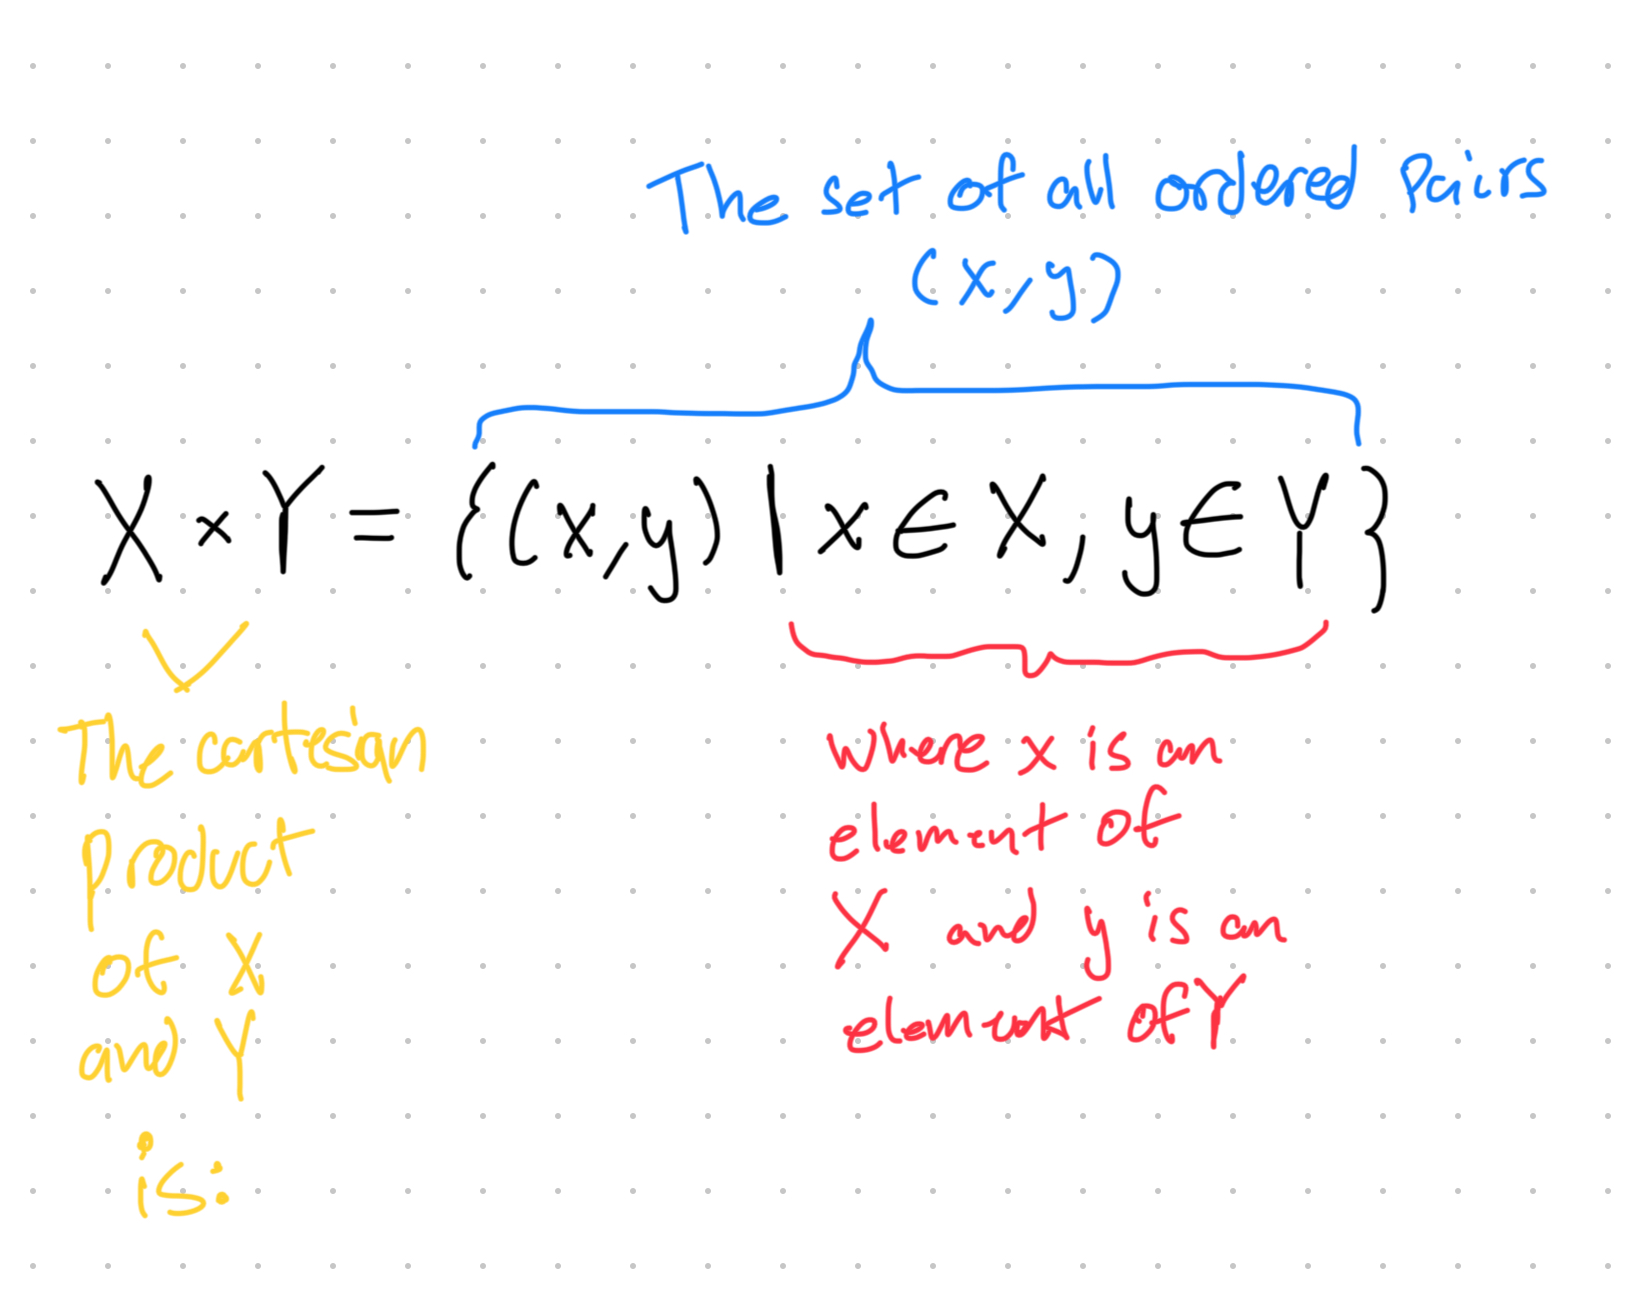 The set of all ordered Pairs
(x,y)
X × Y = {(x,y) | x ∈ X, y ∈ Y}
The cartesian
product
of X
and Y
is:
where x is an
element of
X and y is an
element of Y